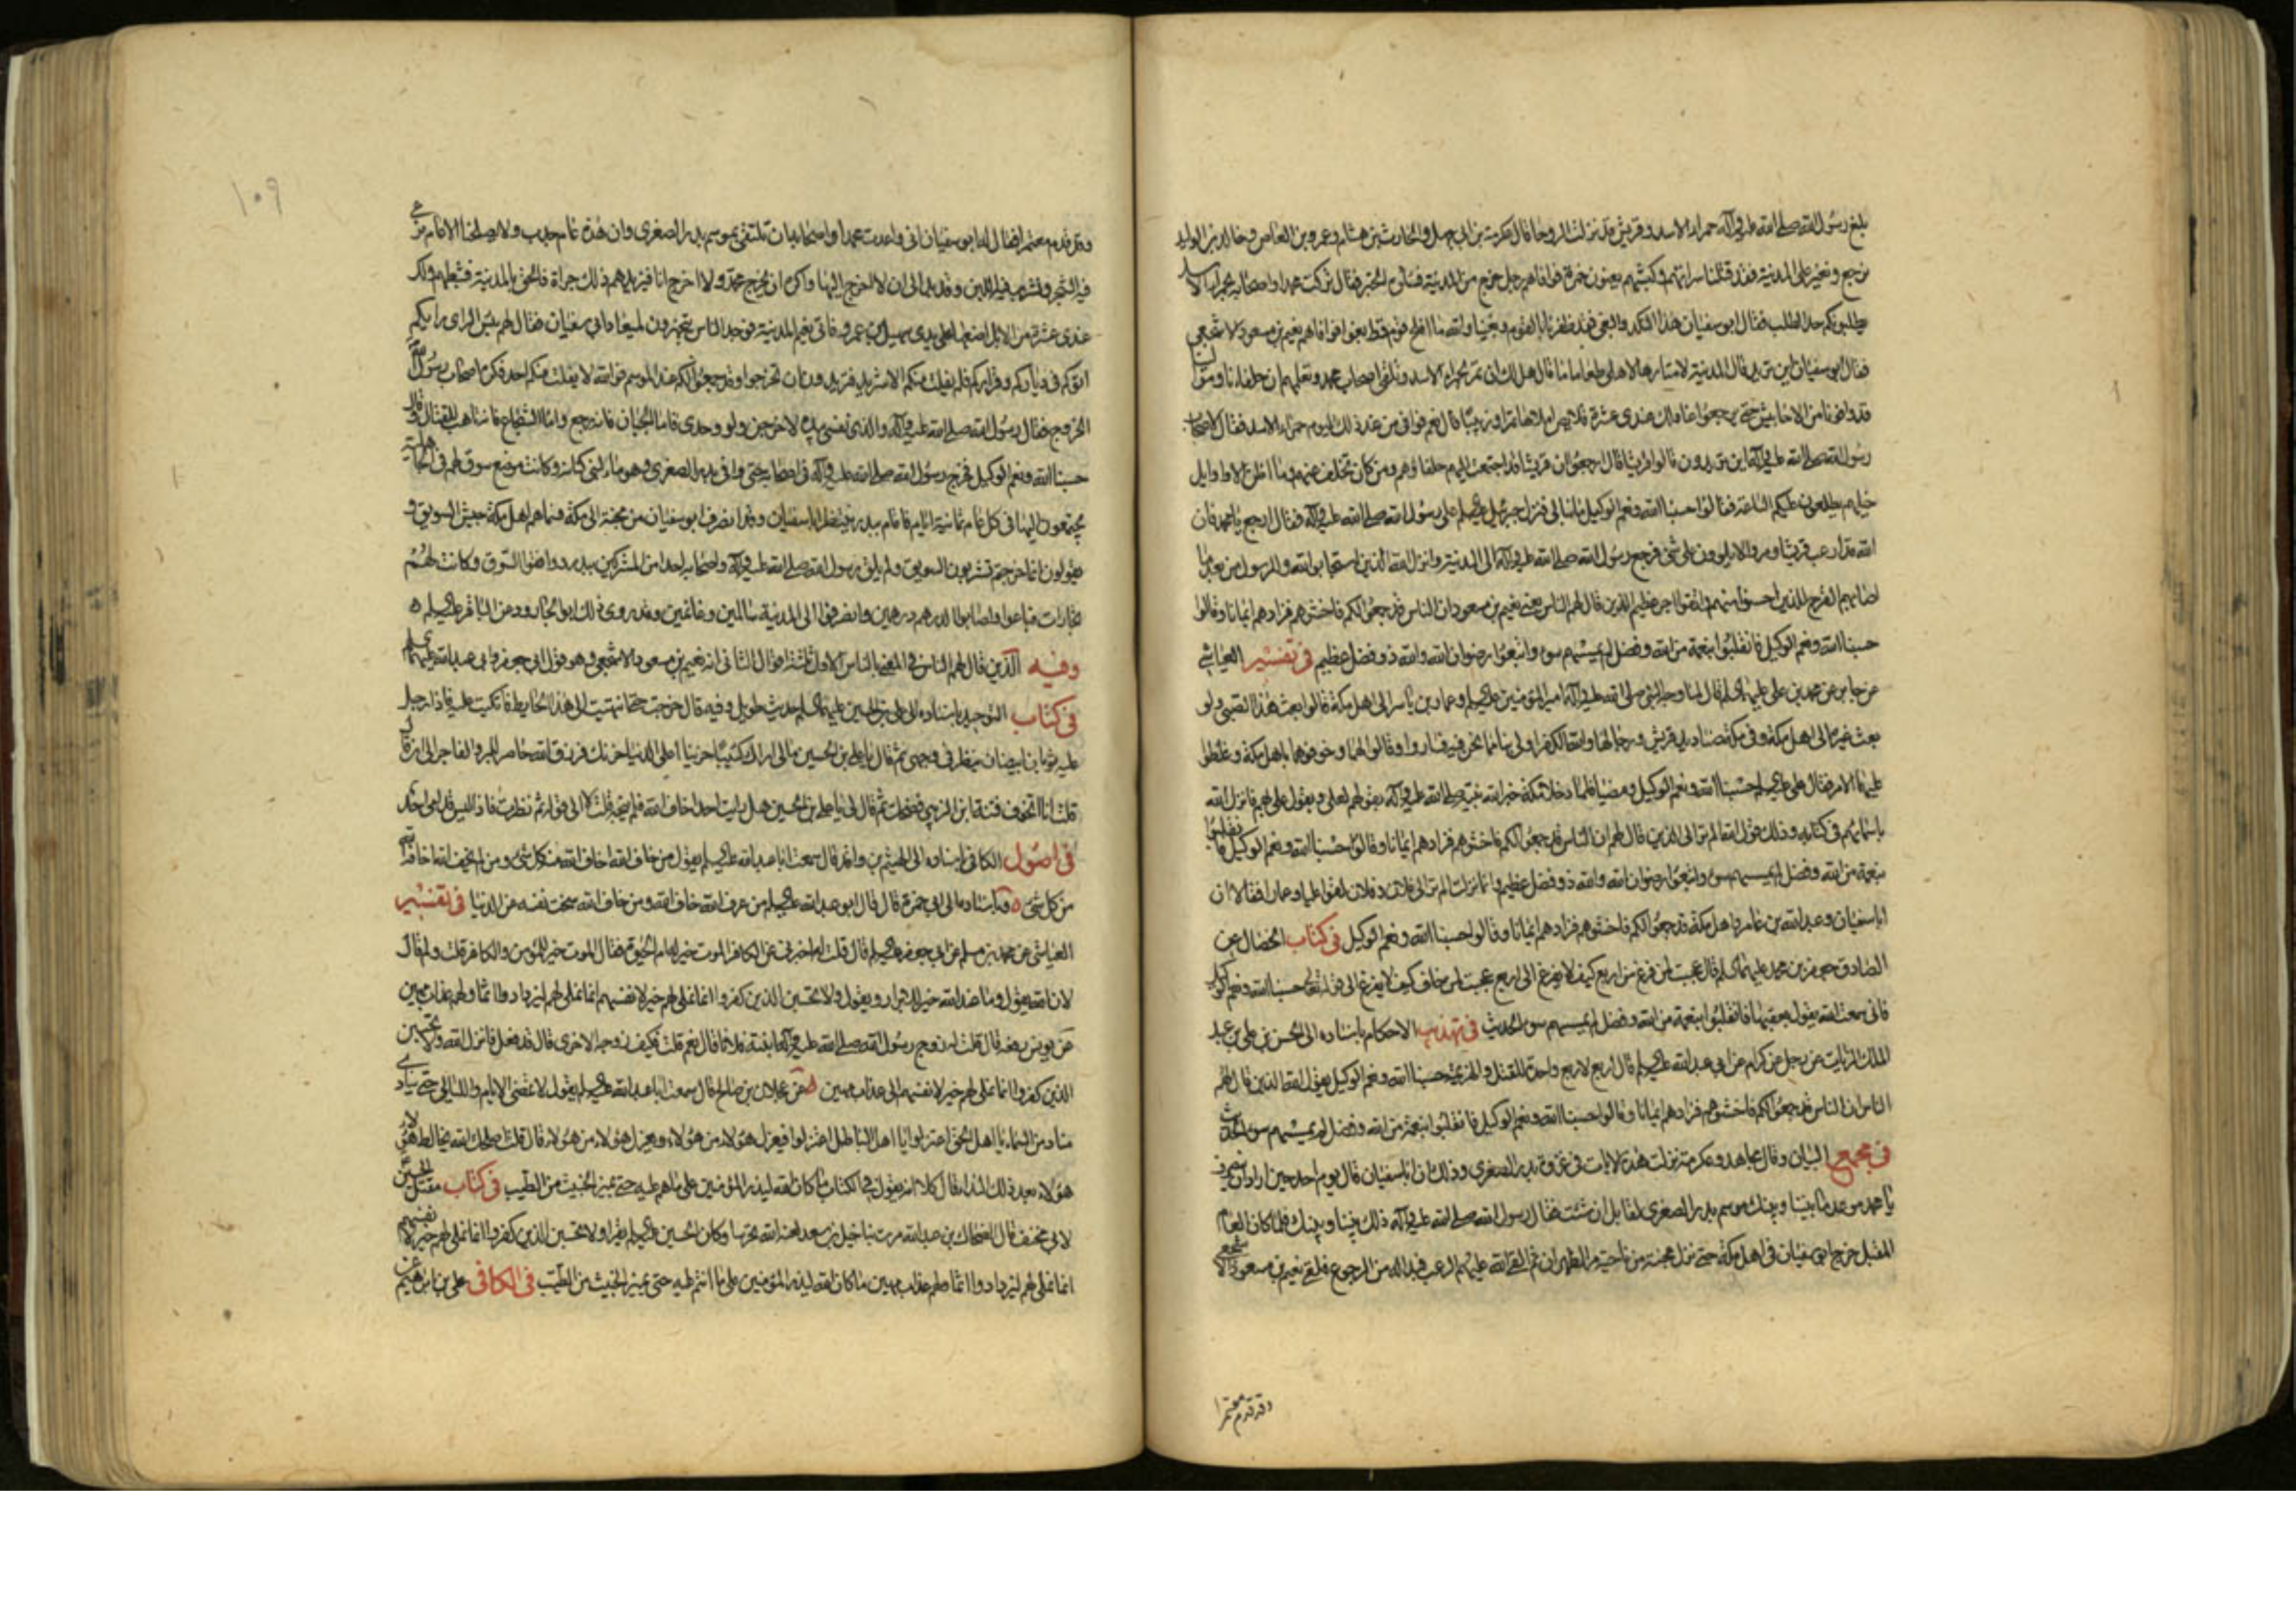 بلغ رسول الله صلى الله عليه وآله حمراء الاسد وقريش قد نزلت الروحا قال عكرمة بن ابي جهل والحارث بن هشام وعمرو بن العاص وخالد بن الوليد
نرجع ونغير على المدينة فقد قتلنا سراتهم وكبشهم يعنون حمزة فوافاهم رجل خرج من المدينة فسألوه الخبر فقال تركت محمدا واصحابه بحمراء الاسد
يطلبونكم جد الطلب فقال ابو سفيان هذا النكد والبغي فقد ظفرنا بالقوم وبغينا والله ما افلح قوم قط بغوا فوافاهم نعيم بن مسعود الاشجعي
فقال ابو سفيان اين تريد قال المدينة لامتار لاهلي طعاما قال هل لك ان تمر بحمراء الاسد وتلقى اصحاب محمد وتعلمهم ان حلفاءنا وموالينا
قد وافونا من الاحابيش حتى يرجعوا عنا ولك عندي عشرة قلايص املاها تمرا وزبيبا قال نعم فوافى من غد ذلك اليوم حمراء الاسد فقال لاصحاب
رسول الله صلى الله عليه وآله اين تريدون قالوا قريشا قال ارجعوا ان قريشا قد اجتمعت اليهم حلفاؤهم ومن كان تخلف عنهم وما اظن الا واوايل
خيلهم يطلعون عليكم الساعة فقالوا حسبنا الله ونعم الوكيل ما نبالي فنزل جبرئيل على رسول الله صلى الله عليه وآله فقال ارجع يا محمد فان
الله قد ارعب قريشا ومروا لا يلوون على شئ فرجع رسول الله صلى الله عليه وآله الى المدينة وانزل الله الذين استجابوا لله والرسول من بعد ما
اصابهم القرح للذين احسنوا منهم واتقوا اجر عظيم الذين قال لهم الناس يعني نعيم بن مسعود ان الناس قد جمعوا لكم فاخشوهم فزادهم ايمانا وقالوا
حسبنا الله ونعم الوكيل فانقلبوا بنعمة من الله وفضل لم يمسسهم سوء واتبعوا رضوان الله والله ذو فضل عظيم في تفسير العياشي
عن جابر عن محمد بن علي عليهما السلم قال لما وجه النبي صلى الله عليه وآله امير المؤمنين عليه السلم وعمار بن ياسر الى اهل مكة قالوا بعث هذا الصبي ولو
بعث غيره الى اهل مكة وفي مكة صناديد قريش ورجالها والله الكفر اولى بنا مما نحن فيه فساروا وقالوا لهما وخوفوهما باهل مكة وغلظوا
عليهما الامر فقال علي عليه السلم حسبنا الله ونعم الوكيل ومضيا فلما دخلا مكة خبر الله نبيه صلى الله عليه وآله بقولهم لعلي وبقول علي لهم فانزل الله
باسمائهم في كتابه وذلك قول الله الم تر الى الذين قال لهم الناس ان الناس قد جمعوا لكم فاخشوهم فزادهم ايمانا وقالوا حسبنا الله ونعم الوكيل فانقلبوا
بنعمة من الله وفضل لم يمسسهم سوء واتبعوا رضوان الله والله ذو فضل عظيم وانما نزلت الم تر الى فلان وفلان لقوا عليا وعمارا فقالا ان
ابا سفيان وعبد الله بن عامر واهل مكة قد جمعوا لكم فاخشوهم فزادهم ايمانا وقالوا حسبنا الله ونعم الوكيل في كتاب الخصال عن
الصادق جعفر بن محمد عليهما السلم قال عجبت لمن فزع من اربع كيف لا يفزع الى اربع عجبت لمن خاف كيف لا يفزع الى قوله تعالى حسبنا الله ونعم الوكيل
فاني سمعت الله يقول بعقبها فانقلبوا بنعمة من الله وفضل لم يمسسهم سوء الحديث في تهذيب الاحكام باسناده الى الحسن بن علي بن عبد
الملك الزيات عن رجل عن كرام عن ابي عبد الله عليه السلم قال اربع لاربع واحدة للقتل والهزيمة حسبنا الله ونعم الوكيل يقول الله الذين قال لهم
الناس ان الناس قد جمعوا لكم فاخشوهم فزادهم ايمانا وقالوا حسبنا الله ونعم الوكيل فانقلبوا بنعمة من الله وفضل لم يمسسهم سوء الحديث
في مجمع البيان وقال مجاهد وعكرمة نزلت هذه الايات في غزوة بدر الصغرى وذلك ان ابا سفيان قال يوم احد حين اراد ان ينصرف
يا محمد موعد ما بيننا وبينك موسم بدر الصغرى لقابل ان شئت فقال رسول الله صلى الله عليه وآله ذلك بيننا وبينك فلما كان العام
المقبل خرج ابو سفيان في اهل مكة حتى نزل مجنة من ناحية مر الظهران ثم القى الله عليهم الرعب فبدا له من الرجوع فلقي نعيم بن مسعود الاشجعي
وقد قدم معتمرا
١٠٩
وقد قدم معتمرا فقال له ابو سفيان اني واعدت محمدا واصحابه ان نلتقي بموسم بدر الصغرى وان هذه عام جدب ولا يصلحنا الا عام نرعى
فيه الشجر ونشرب فيه اللبن وقد بدا لي ان لا اخرج اليها واكره ان يخرج محمد ولا اخرج انا فيزيدهم ذلك جراة فالحق بالمدينة فثبطهم ولك
عندي عشرة من الابل اضعها على يدي سهيل بن عمرو فاتى نعيم المدينة فوجد الناس يتجهزون لميعاد ابي سفيان فقال لهم بئس الراى رايكم
اتوكم في دياركم وقراركم فلم يفلت منكم الا شريد فتريدون ان تخرجوا وقد جمعوا لكم عند الموسم فوالله لا يفلت منكم احد فكره اصحاب رسول الله
الخروج فقال رسول الله صلى الله عليه وآله والذي نفسي بيده لاخرجن ولو وحدي فاما الجبان فانه رجع واما الشجاع فانه تاهب للقتال وقال
حسبنا الله ونعم الوكيل فخرج رسول الله صلى الله عليه وآله في اصحابه حتى وافى بدر الصغرى وهو ماء لبني كنانة وكانت موضع سوق لهم في الجاهلية
يجتمعون اليها في كل عام ثمانية ايام فاقام ببدر ينتظر ابا سفيان وقد انصرف ابو سفيان من مجنة الى مكة فسماهم اهل مكة جيش السويق و
يقولون انما خرجتم تشربون السويق ولم يلق رسول الله صلى الله عليه وآله واصحابه احدا من المشركين ببدر ووافقوا السوق وكانت لهم
تجارات فباعوا واصابوا للدرهم درهمين وانصرفوا الى المدينة سالمين وغانمين وقد روى ذلك ابو الجارود عن الباقر عليه السلم
وفيه الذين قال لهم الناس في المعني بالناس الاول ثلثة اقوال الثاني انه نعيم بن مسعود الاشجعي وهو قول ابي جعفر وابي عبد الله عليهما السلم
في كتاب التوحيد باسناده الى علي بن الحسين عليهما السلم حديث طويل وفيه قال خرجت حتى انتهيت الى هذا الحايط فاتكيت عليه فاذا رجل
عليه ثوبان ابيضان ينظر في وجهي ثم قال يا علي بن الحسين مالي اراك كئيبا حزينا اعلى الدنيا حزنك فرزق الله حاضر للبر والفاجر الى ان قال
قلت انا اتخوف فتنة ابن الزبير فضحك ثم قال لي يا علي بن الحسين هل رايت احدا خاف الله فلم ينجه قلت لا الى قوله ثم نظرت فاذا ليس قدامي احد
في اصول الكافي باسناده الى الهيثم بن واقد قال سمعت ابا عبد الله عليه السلم يقول من خاف الله اخاف الله منه كل شئ ومن لم يخف الله اخافه الله
من كل شئ وباسناده الى ابي حمزة قال قال ابو عبد الله عليه السلم من عرف الله خاف الله ومن خاف الله سخت نفسه عن الدنيا في تفسير
العياشي عن محمد بن مسلم عن ابي جعفر عليه السلم قال قلت له اخبرني عن الكافر الموت خير له ام الحيوة فقال الموت خير للمؤمن والكافر قلت ولم قال
لان الله يقول وما عند الله خير للابرار ويقول ولا تحسبن الذين كفروا انما نملي لهم خير لانفسهم انما نملي لهم ليزدادوا اثما ولهم عذاب مهين
عن يونس رفعه قال قلت له زوج رسول الله صلى الله عليه وآله ابنته فلانا قال نعم قلت فكيف زوجه الاخرى قال قد فعل فانزل الله ولا تحسبن
الذين كفروا انما نملي لهم خير لانفسهم الى عذاب مهين عن عجلان بن صالح قال سمعت ابا عبد الله عليه السلم يقول لا تمضي الايام والليالي حتى ينادي
مناد من السماء يا اهل الحق اعتزلوا يا اهل الباطل اعتزلوا فيعزل هؤلاء من هؤلاء ويعزل هؤلاء من هؤلاء قال قلت اصلحك الله يخالط هؤلاء
هؤلاء بعد ذلك النداء قال كلا انه يقول في الكتاب ما كان الله ليذر المؤمنين على ما هم عليه حتى يميز الخبيث من الطيب في كتاب مقتل الحسين
لابي مخنف قال الضحاك بن عبد الله مرت بنا خيل بن سعد لعنه الله تحرسنا وكان الحسين عليه السلم يقرأ ولا تحسبن الذين كفروا انما نملي لهم خير لانفسهم
انما نملي لهم ليزدادوا اثما ولهم عذاب مهين ما كان الله ليذر المؤمنين على ما انتم عليه حتى يميز الخبيث من الطيب في الكافي علي بن ابراهيم عن